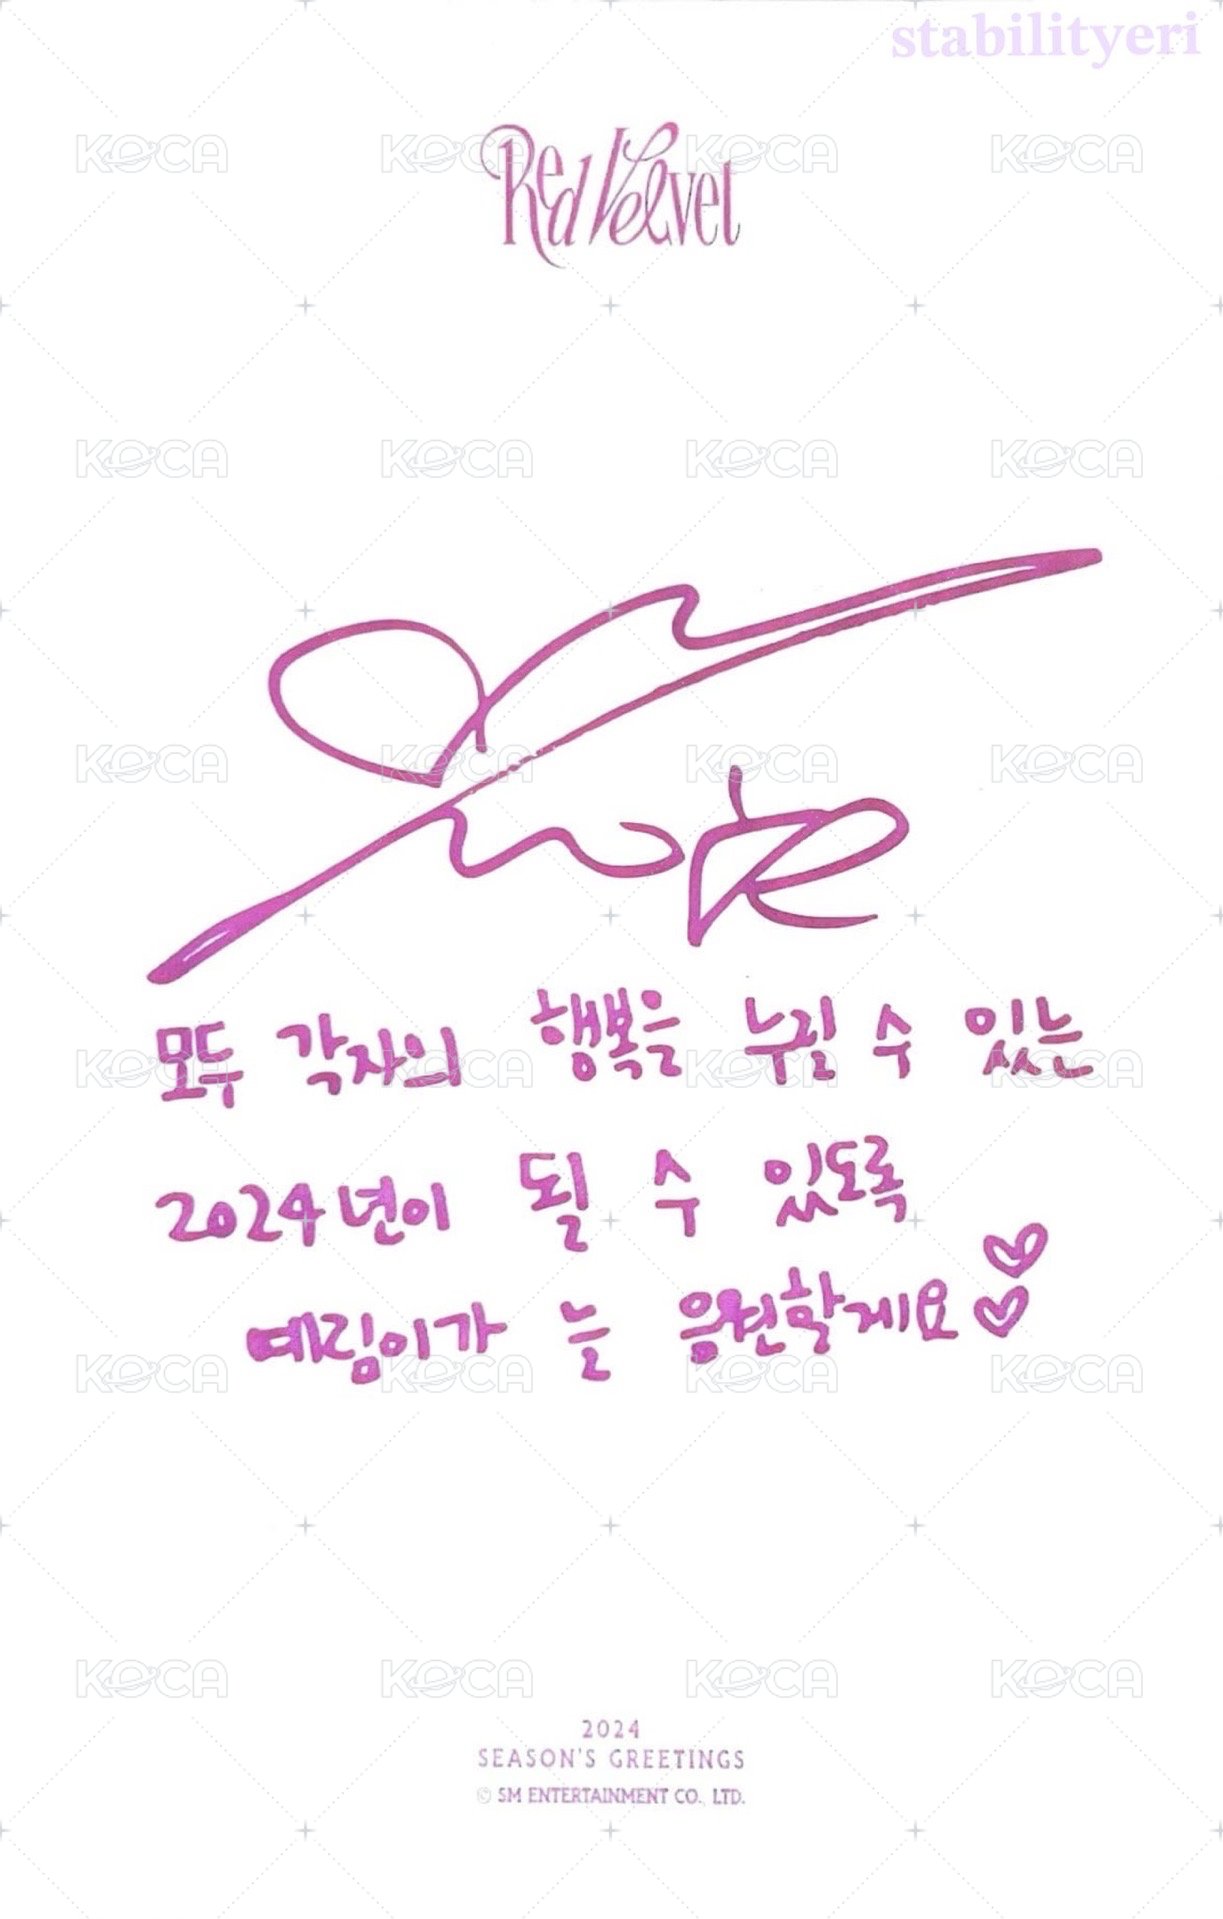 stabilityeri
Red Velvet
모두 각자의 행복을 누릴 수 있는
2024년이 될 수 있도록
예림이가 늘 응원할게요♡♡
2024
SEASON'S GREETINGS
© SM ENTERTAINMENT CO., LTD.
KOCA KOCA KOCA KOCA
KOCA KOCA KOCA KOCA
KOCA KOCA KOCA KOCA
KOCA KOCA KOCA KOCA
KOCA KOCA KOCA KOCA
KOCA KOCA KOCA KOCA